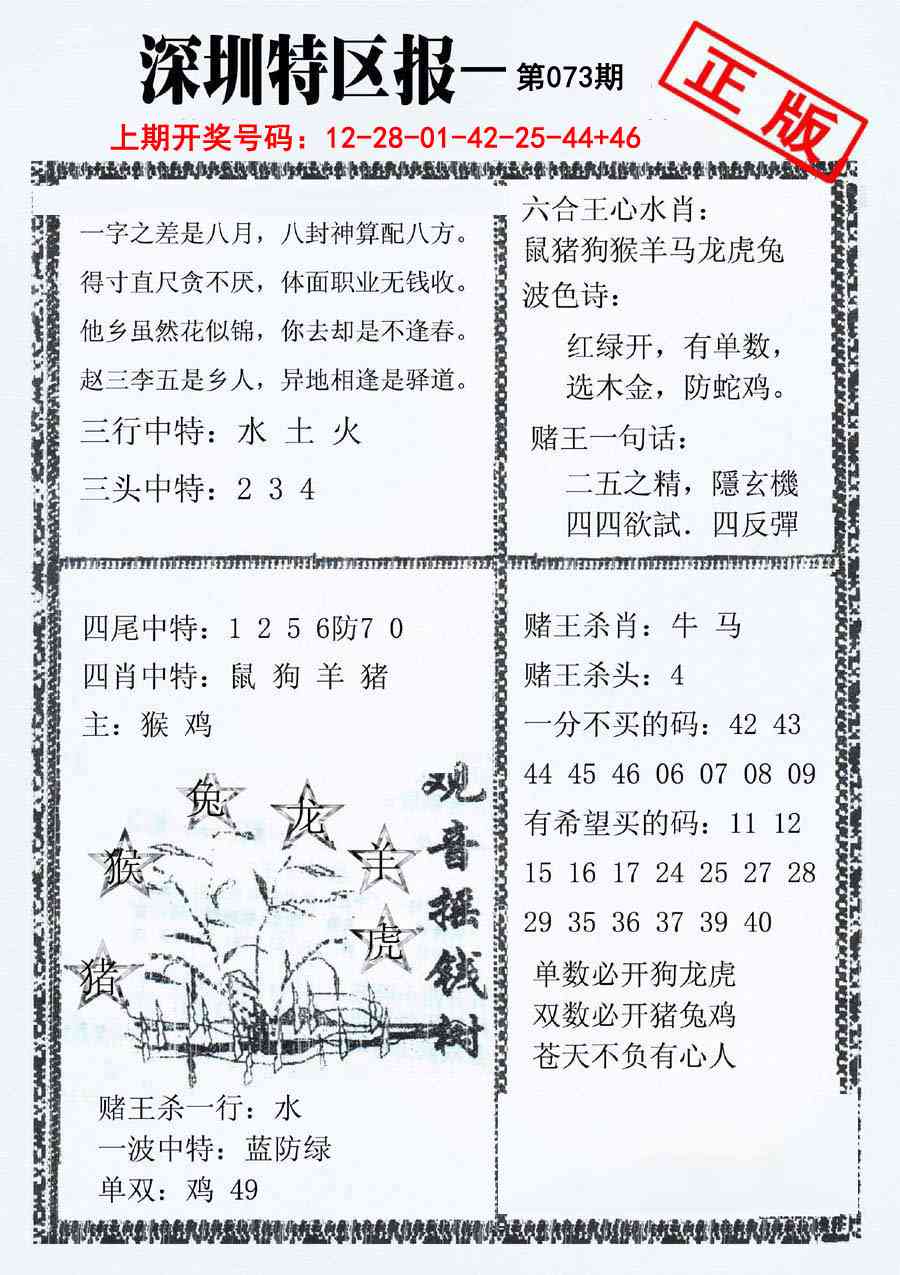 深圳特区报—第073期
正版
上期开奖号码：12-28-01-42-25-44+46
一字之差是八月，八封神算配八方。
得寸直尺贪不厌，体面职业无钱收。
他乡虽然花似锦，你去却是不逢春。
赵三李五是乡人，异地相逢是驿道。
三行中特：水 土 火
三头中特：2 3 4
六合王心水肖：
鼠猪狗猴羊马龙虎兔
波色诗：
红绿开，有单数，
选木金，防蛇鸡。
赌王一句话：
二五之精，隱玄機
四四欲試．四反彈
四尾中特：1 2 5 6防7 0
四肖中特：鼠 狗 羊 猪
主：猴 鸡
兔
龙
猴
羊
虎
猪
观音摇钱树
赌王杀一行：水
一波中特：蓝防绿
单双：鸡 49
赌王杀肖：牛 马
赌王杀头：4
一分不买的码：42 43
44 45 46 06 07 08 09
有希望买的码：11 12
15 16 17 24 25 27 28
29 35 36 37 39 40
单数必开狗龙虎
双数必开猪兔鸡
苍天不负有心人